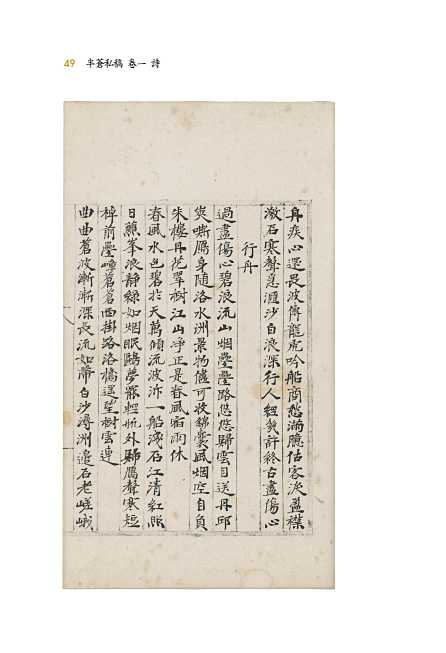 49 半蒼私稿 卷一 詩
舟疾心還畏波傳龍虎吟船商愁滿臆估客淚盈襟
激石寒聲急涵沙白浪深行人經幾許終古盡傷心
行舟
過盡傷心碧浪流山烟疊疊路悠悠歸雲目送丹邱
爽嘶鴈身隨洛水洲景物儘可收錦囊風烟空自負
朱樓丹花翠樹江山淨正是春風宿雨休
春風水色碧於天萬傾流波泝一船淺石江清紅照
日蕉峯浪靜綠如烟眠鷗夢罷輕帆外歸鴈聲寒短
棹前疊嶂蒼蒼西掛路洛橋遥望樹雲連
曲曲蒼波漸漸深長流如帶白沙潯洲邊石老嵯峨